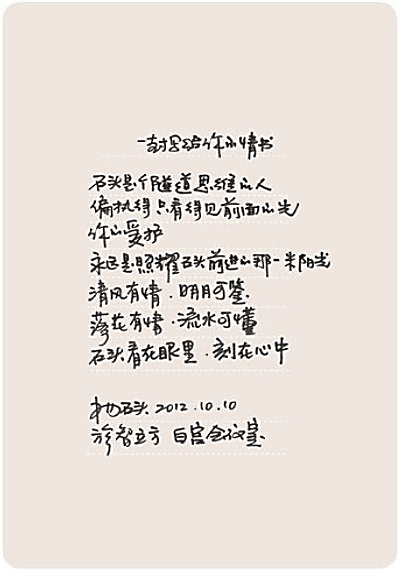 一封写给你的情书
石头是个隧道思维的人
偏执得只看得见前面的光
你的爱护
永远是照耀石头前进的那一米阳光
清风有情.明月可鉴.
落花有情.流水可懂
石头看在眼里.刻在心中
石头 2012.10.10
于 智立方 白宫会议室